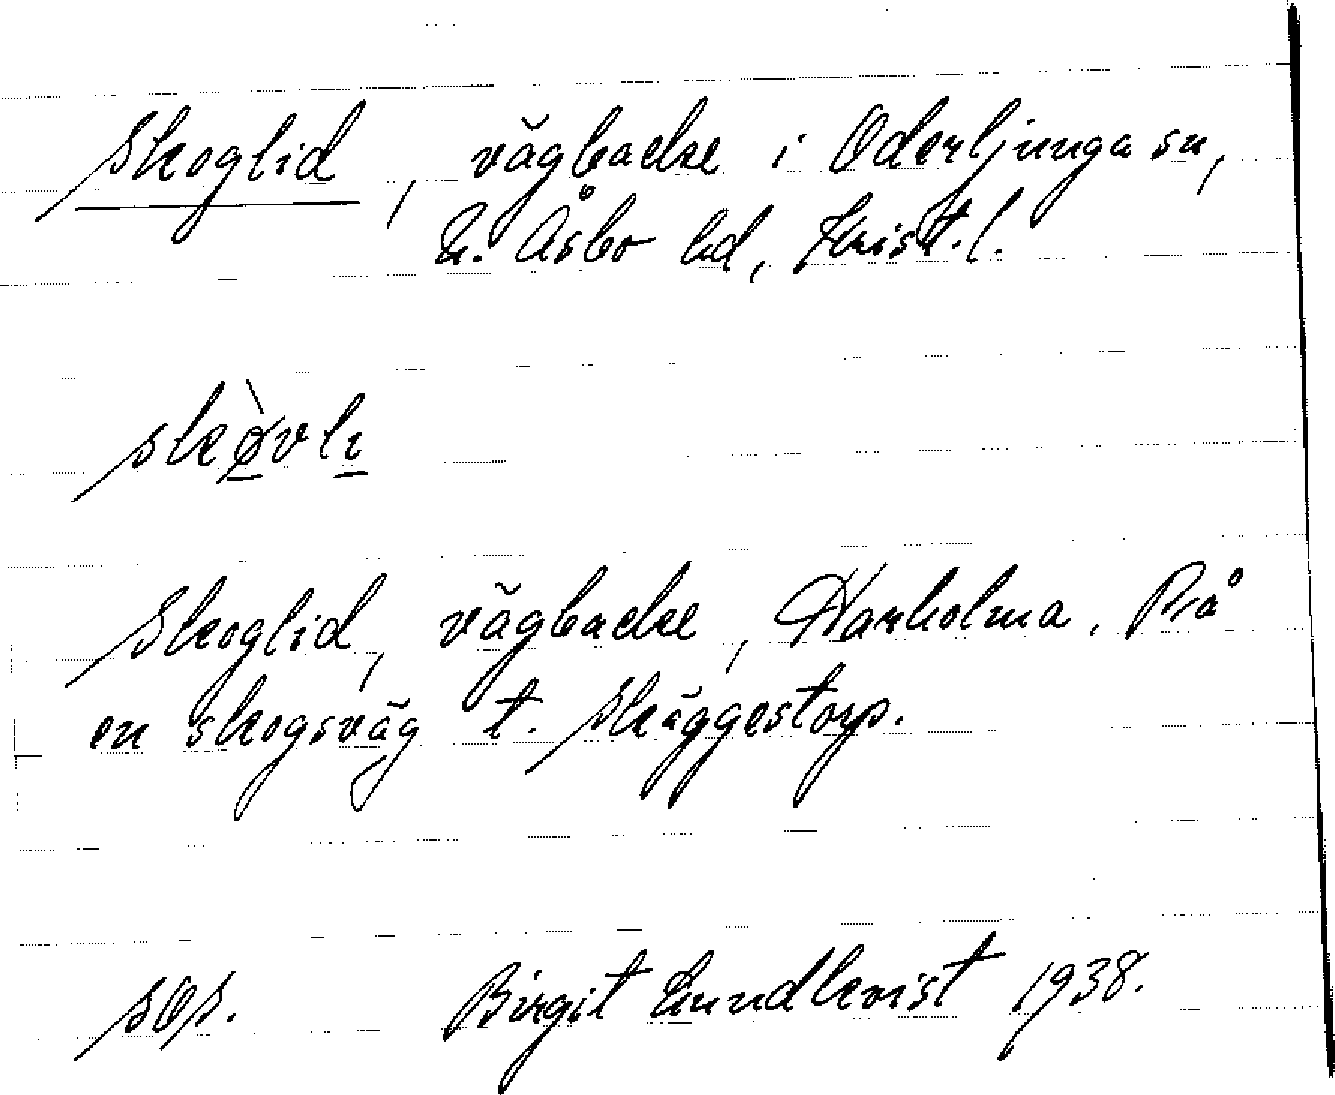 Skoglid, vägbacke i Oderljunga sn,
N. Åsbo hd, Krist. l.
skø̀vlı
Skoglid, vägbacke, Harholma. På
en skogsväg t. Skäggestorp.
sOs. Birgit Lundkvist 1938.